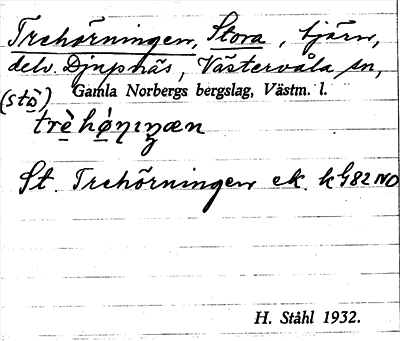 Trehörningen, Stora, tjärn,
delv. Djupnäs, Västervåla sn,
Gamla Norbergs bergslag, Västm. l.
(stò̤)
trè̤hǿ̤ṇıṇæn
St. Trehörningen ek. kG82NO
H. Ståhl 1932.